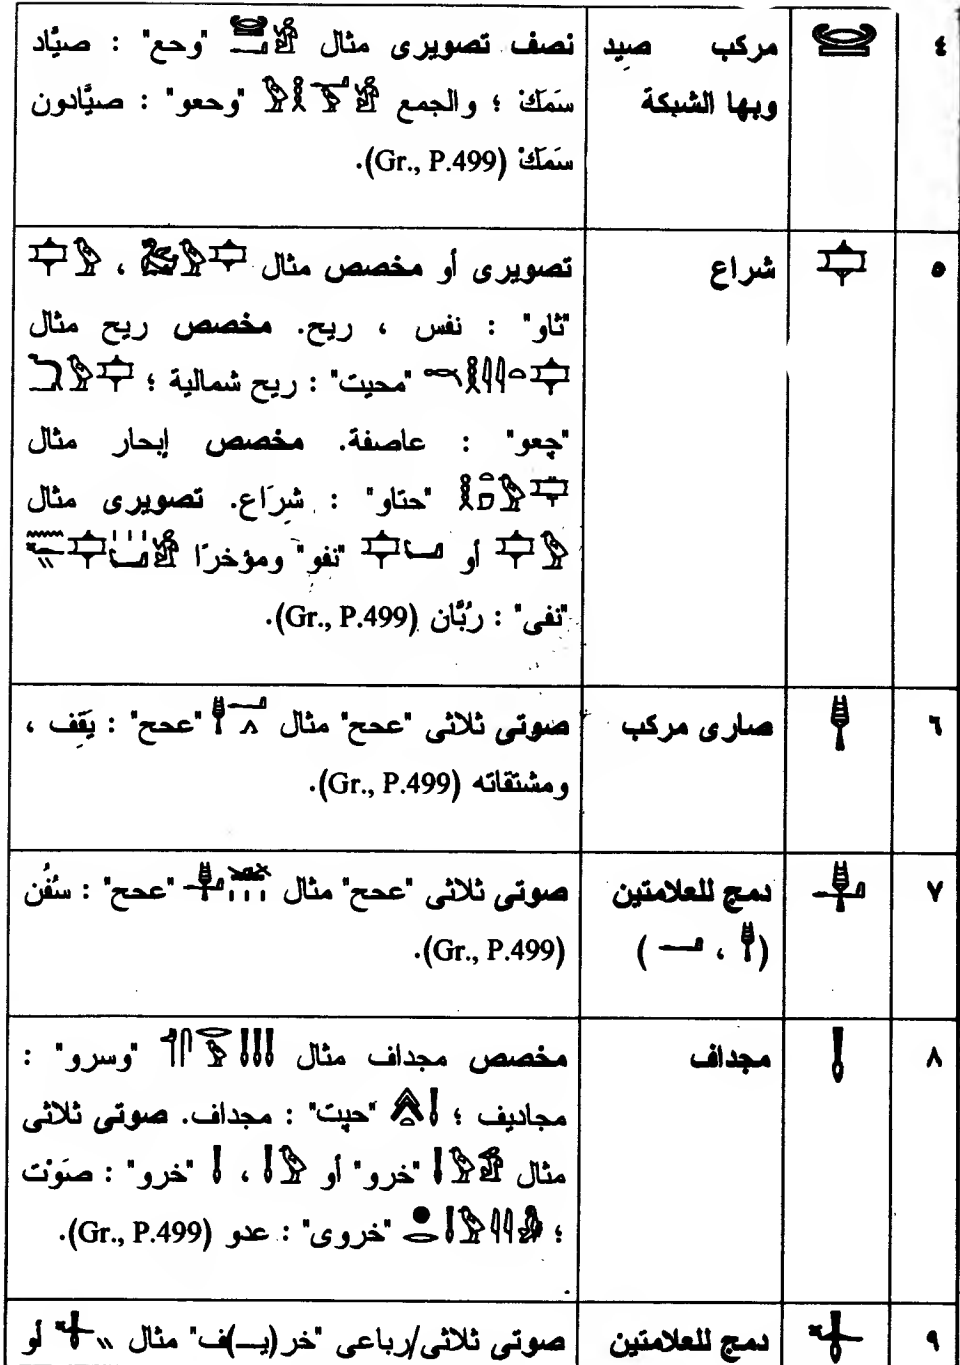 ٤ مركب صيد نصف تصويرى مثال "وحع" : صيَّاد
وبها الشبكة سَمَكْ ؛ والجمع "وحعو" : صيَّادون
سَمَكْ (Gr., P.499).
٥ شراع تصويرى أو مخصص مثال ،
"ثاو" : نفس ، ريح. مخصص ريح مثال
"محيت" : ريح شمالية ؛
"چعو" : عاصفة. مخصص إبحار مثال
"حتاو" : شِرَاع. تصويرى مثال
أو "نفو" ومؤخرًا
"نفى" : رُبَّان (Gr., P.499).
٦ صارى مركب صوتى ثلاثى "عحح" مثال "عحح" : يَقِف ،
ومشتقاته (Gr., P.499).
٧ دمج للعلامتين صوتى ثلاثى "عحح" مثال "عحح" : سُفُن
( ، ) (Gr., P.499).
٨ مجداف مخصص مجداف مثال "وسرو" :
مجاديف ؛ "حپت" : مجداف. صوتى ثلاثى
مثال "خرو" أو ، "خرو" : صَوْت
؛ "خروى" : عدو (Gr., P.499).
٩ دمج للعلامتين صوتى ثلاثى/رباعى "خر(يــ)ف" مثال أو